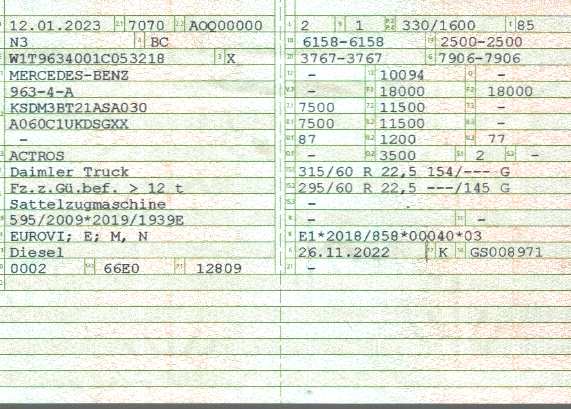 12.01.2023 7070 A0Q00000
N3 BC
W1T9634001C053218 X
MERCEDES-BENZ
963-4-A
KSDM3BT21ASA030
A060C1UKDSGXX
-
ACTROS
Daimler Truck
Fz.z.Gü.bef. > 12 t
Sattelzugmaschine
595/2009*2019/1939E
EUROVI; E; M, N
Diesel
0002 66E0 12809
2 1 330/1600 85
6158-6158 2500-2500
3767-3767 7906-7906
- 10094 -
- 18000 18000
7500 11500 -
7500 11500 -
87 1200 77
- 3500 2 -
315/60 R 22,5 154/--- G
295/60 R 22,5 ---/145 G
-
- -
E1*2018/858*00040*03
26.11.2022 K GS008971
-